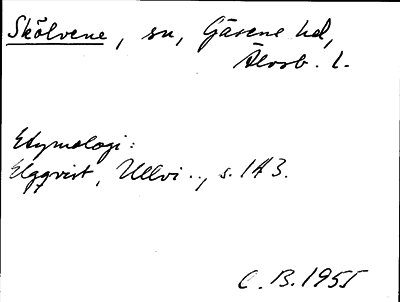 Skölvene, sn, Gäsene hd,
Älvsb. l.
Etymologi:
Elgqvist, Ullvi.., s. 143.
C.B. 1955